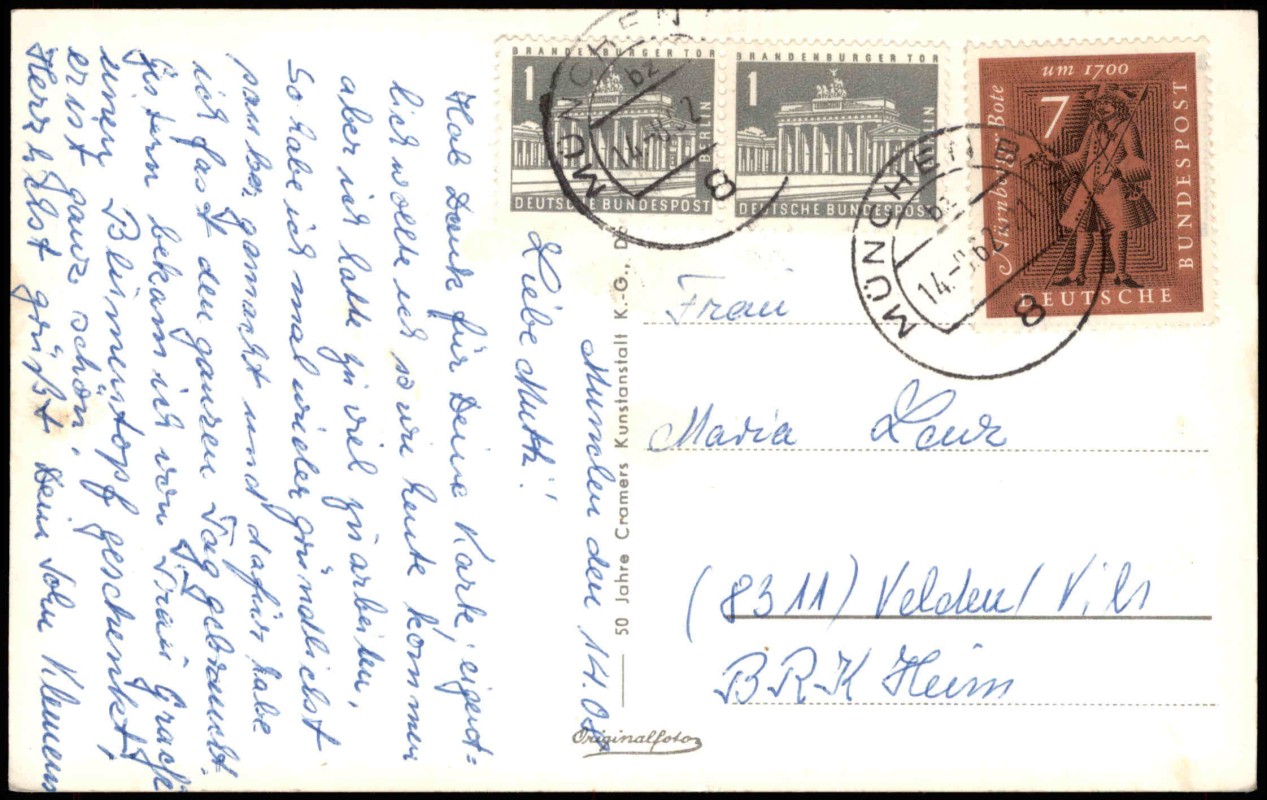 München den 14. Okt
Liebe Mutti!
Hab Dank für Deine Karte, eigent=
lich wollte ich so wie heute kommen
aber ich hatte zu viel zu arbeiten,
So habe ich mal wieder gründlichst
sauber gemacht und dafür habe
ich fast den ganzen Tag gebraucht.
Gestern bekam ich von Frau
einen Blumentopf geschenkt,
er ist ganz schön.
Herzlichst grüßt Dein Sohn Klemens
BRANDENBURGER TOR
1
BERLIN
DEUTSCHE BUNDESPOST
BRANDENBURGER TOR
1
BERLIN
DEUTSCHE BUNDESPOST
um 1700
7
Nürnberger Bote
DEUTSCHE
BUNDESPOST
MÜNCHEN
bz
8
MÜNCHEN
bz
8
Frau
Maria
(8311) Velden/Vils
BRK Heim
50 Jahre Cramers Kunstanstalt K.-G.,
Originalfoto